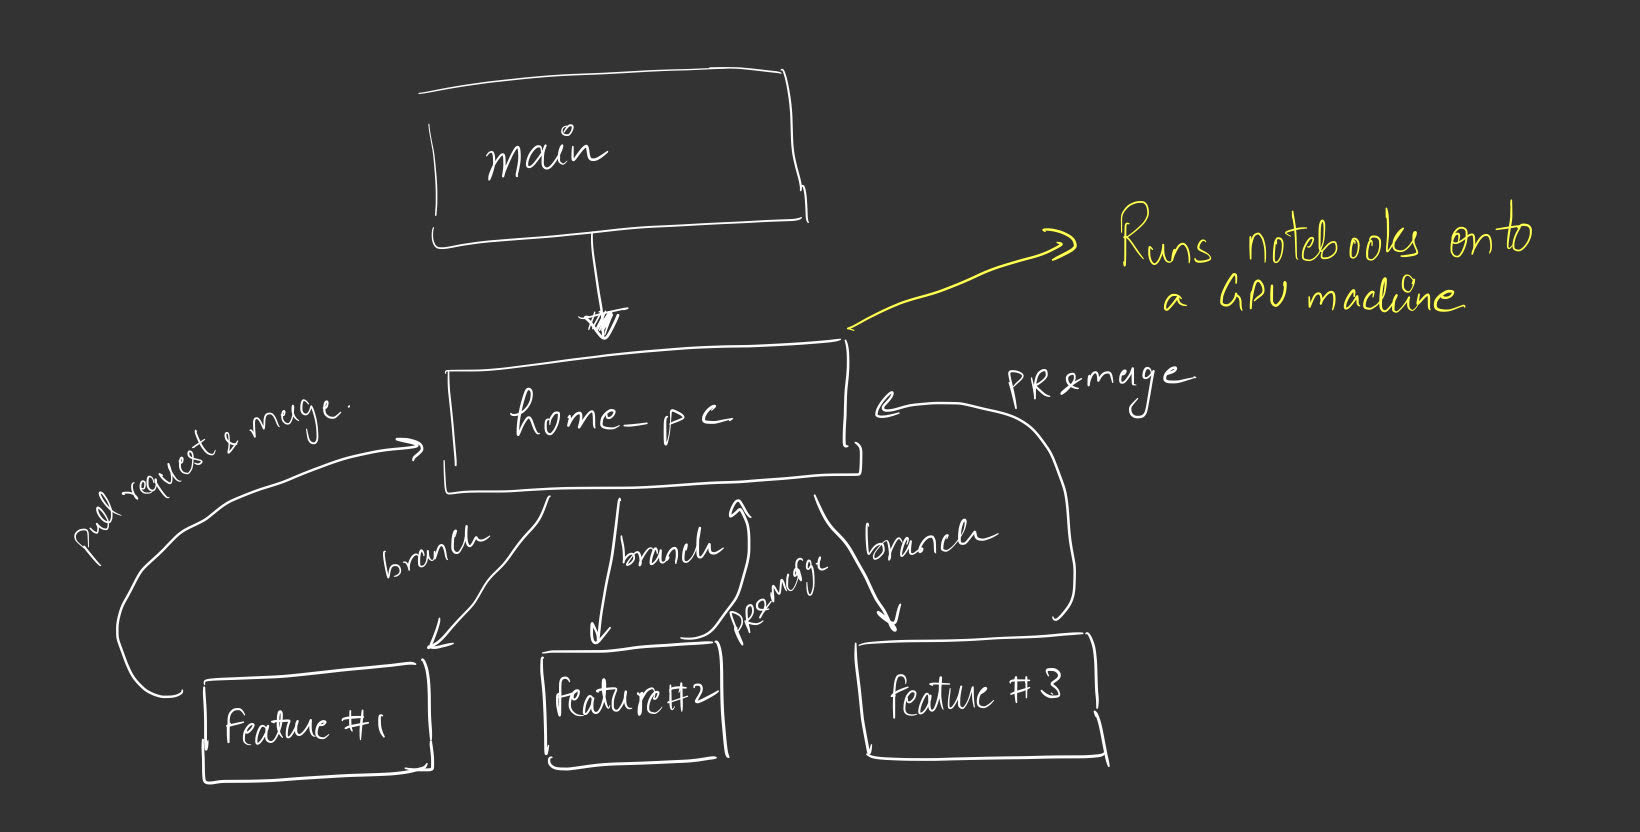 main
Runs notebooks onto
a GPU machine
home_pc
PR & merge
pull request & merge.
branch
branch
branch
PR & merge
Feature #1
feature #2
feature #3